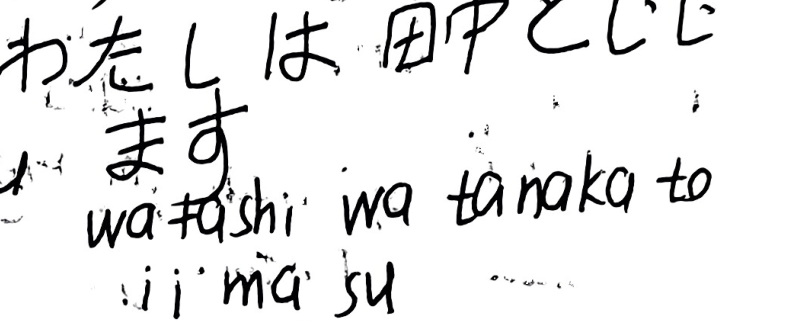 わたし は 田中 と いい
ます
watashi wa tanaka to
ii ma su